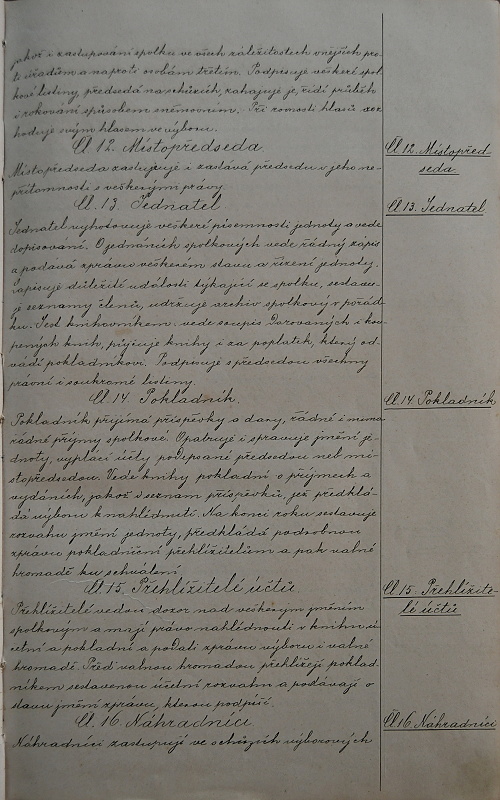 jakož i zastupování spolku ve všech záležitostech vnějších pro-
ti úřadům a naproti osobám třetím. Podpisuje veškeré spol-
kové listiny, předsedá na schůzích, zahajuje je, řídí průběh
i rokování způsobem sněmovním. Při rovnosti hlasů roz-
hoduje svým hlasem ve výboru.
Čl. 12. Místopředseda.
Čl. 12. Místopřed-
seda.
Místopředseda zastupuje i zastává předsedu v jeho ne-
přítomnosti s veškerými právy.
Čl. 13. Jednatel.
Čl. 13. Jednatel
Jednatel vyhotovuje veškeré písemnosti jednoty a vede
dopisování. O jednáních spolkových vede řádný zápis
a podává zprávu veškerém stavu a řízení jednoty.
Zapisuje důležité události týkající se spolku, sestavu-
je seznamy členů, udržuje archiv spolkový v pořád-
ku. Jest knihovníkem: vede soupis darovaných i kou-
pených knih, půjčuje knihy i za poplatek, který od-
vádí pokladníkovi. Podpisuje s předsedou všechny
právní i soukromé listiny.
Čl. 14. Pokladník.
Čl. 14. Pokladník
Pokladník přijímá příspěvky a dary, řádné i mimo
řádné příjmy spolkové. Opatruje i spravuje jmění je-
dnoty, vyplácí účty podepsané předsedou neb mí-
stopředsedou. Vede knihy pokladní o příjmech a
vydáních, jakož i seznam příspěvků, jež předklá-
dá výboru k nahlédnutí. Na konci roku sestavuje
rozvahu jmění jednoty, předkládá podrobnou
zprávu pokladniční přehlížitelům a pak valné
hromadě ku schválení.
Čl. 15. Přehlížitelé účtů
Čl. 15. Přehlížite-
lé účtů
Přehlížitelé vedou dozor nad veškerým jměním
spolkovým a mají právo nahlédnouti v knihu ú-
četní a pokladní a podati zprávu výboru i valné
hromadě. Před valnou hromadou přehlížejí poklad-
níkem sestavenou účetní rozvahu a podávají o
stavu jmění zprávu, kterou podpíší.
Čl. 16. Náhradníci
Čl. 16. Náhradníci
Náhradníci zastupují ve schůzích výborových